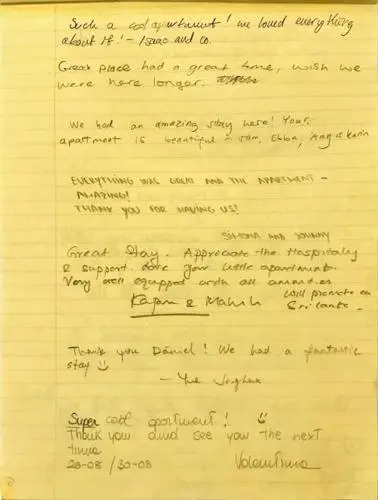 Such a cool apartment! we loved everything
about it! - Isaac and co.
Great place had a great time, wish we
were here longer.
We had an amazing stay here! Your
apartment is beautiful :) Sam, Ebba,
EVERYTHING WAS GREAT AND THE APARTMENT -
AMAZING!
THANK YOU FOR HAVING US!
SIMONA AND JOHNNY
Great Stay. Appreciate the Hospitality
& support. Love your little apartment.
Very well equipped with all amenities
Will promote in
Sri Lanka.
Thank you Daniel! We had a fantastic
stay
Super cool apartment!
Thank you and see you the next
time
20-08 / 30-08 Valentina